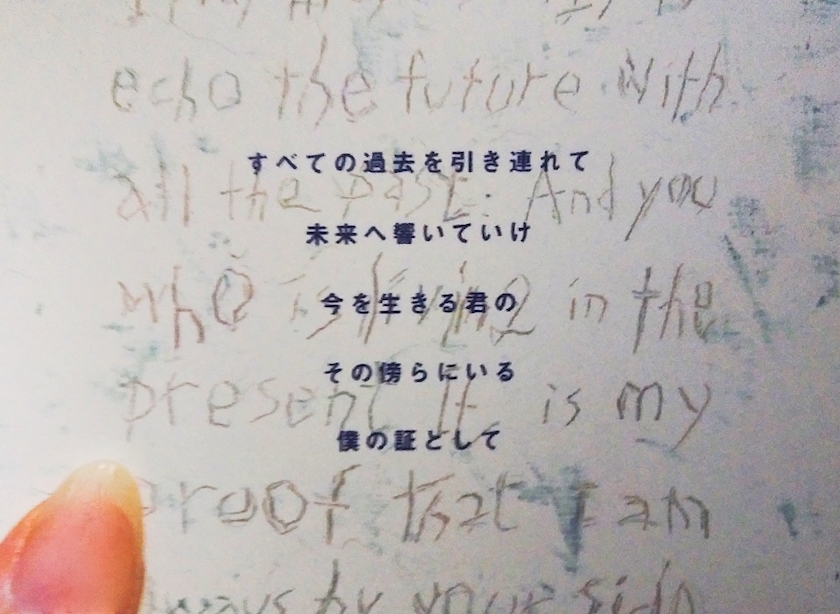 echo the future with
すべての過去を引き連れて
all the past. And you
未来へ響いていけ
who is living in the
今を生きる君の
その傍らにいる
present. It is my
僕の証として
proof that I am
always by your side